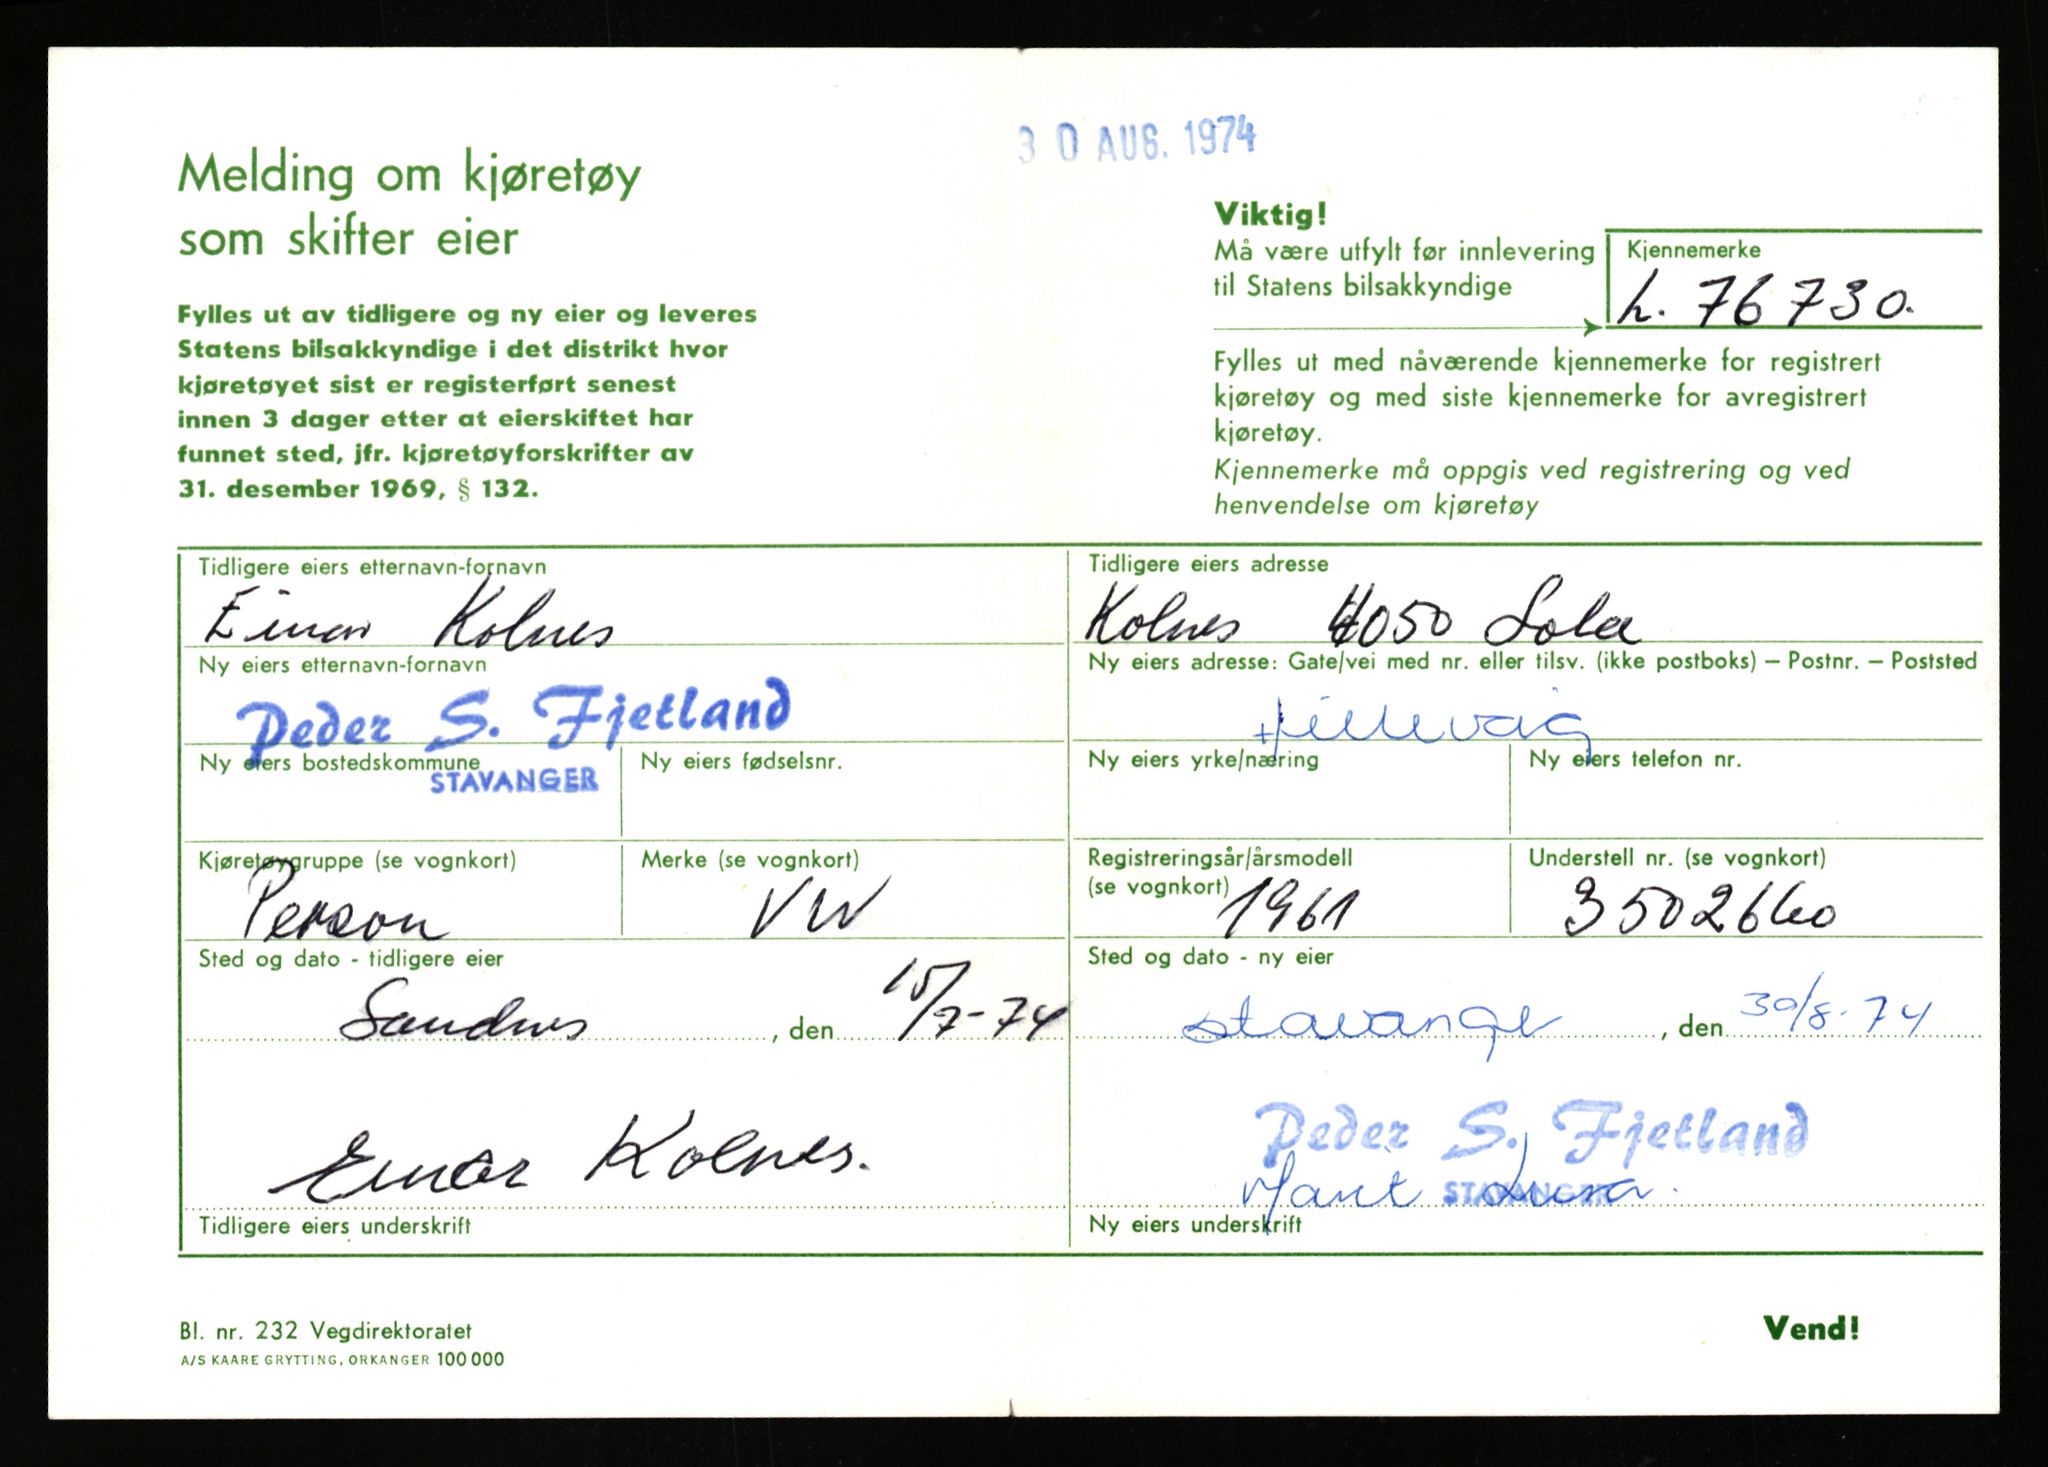 30 AUG. 1974
Melding om kjøretøy
som skifter eier
Fylles ut av tidligere og ny eier og leveres
Statens bilsakkyndige i det distrikt hvor
kjøretøyet sist er registerført senest
innen 3 dager etter at eierskiftet har
funnet sted, jfr. kjøretøyforskrifter av
31. desember 1969, § 132.
Viktig!
Må være utfylt før innlevering
til Statens bilsakkyndige
Kjennemerke
L. 76730.
Fylles ut med nåværende kjennemerke for registrert
kjøretøy og med siste kjennemerke for avregistrert
kjøretøy.
Kjennemerke må oppgis ved registrering og ved
henvendelse om kjøretøy
Tidligere eiers etternavn-fornavn
Einar Kolnes
Tidligere eiers adresse
Kolnes 4050 Sola
Ny eiers etternavn-fornavn
Peder S. Fjetland
STAVANGER
Ny eiers adresse: Gate/vei med nr. eller tilsv. (ikke postboks) – Postnr. – Poststed
Hillevåg
Ny eiers bostedskommune
Ny eiers fødselsnr.
Ny eiers yrke/næring
Ny eiers telefon nr.
Kjøretøygruppe (se vognkort)
Person
Merke (se vognkort)
VW
Registreringsår/årsmodell
(se vognkort)
1961
Understell nr. (se vognkort)
3502660
Sted og dato - tidligere eier
Sandnes, den 15/7-74
Sted og dato - ny eier
Stavanger, den 30/8-74
Einar Kolnes.
Tidligere eiers underskrift
Peder S. Fjetland
STAVANGER
Marit
Ny eiers underskrift
Bl. nr. 232 Vegdirektoratet
A/S KAARE GRYTTING, ORKANGER 100 000
Vend!